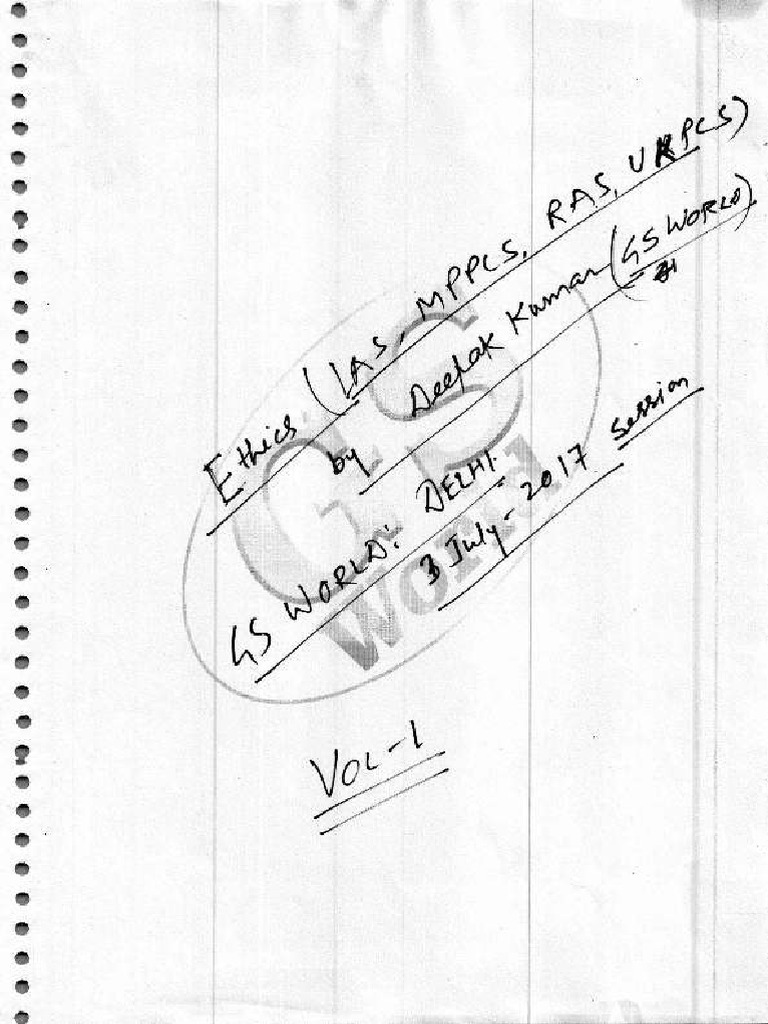 Ethics (IAS, MPPCS, RAS, UKPCS)
by Deepak Kumar (GS WORLD)
GS WORLD: DELHI.
3 July-2017 Session
VOL-1
GS
World